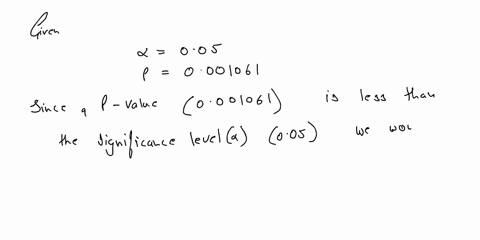 Given
α = 0.05
P = 0.001061
Since, P-value (0.001061) is less than
the significance level(α) (0.05) we wou